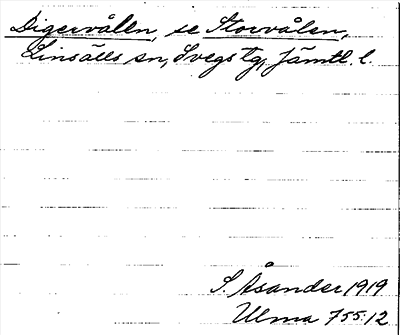 Digervålen, se Storvålen,
Linsälls sn, Svegs tg, Jämtl. l.
S. Åsander 1919
Ulma 755:12